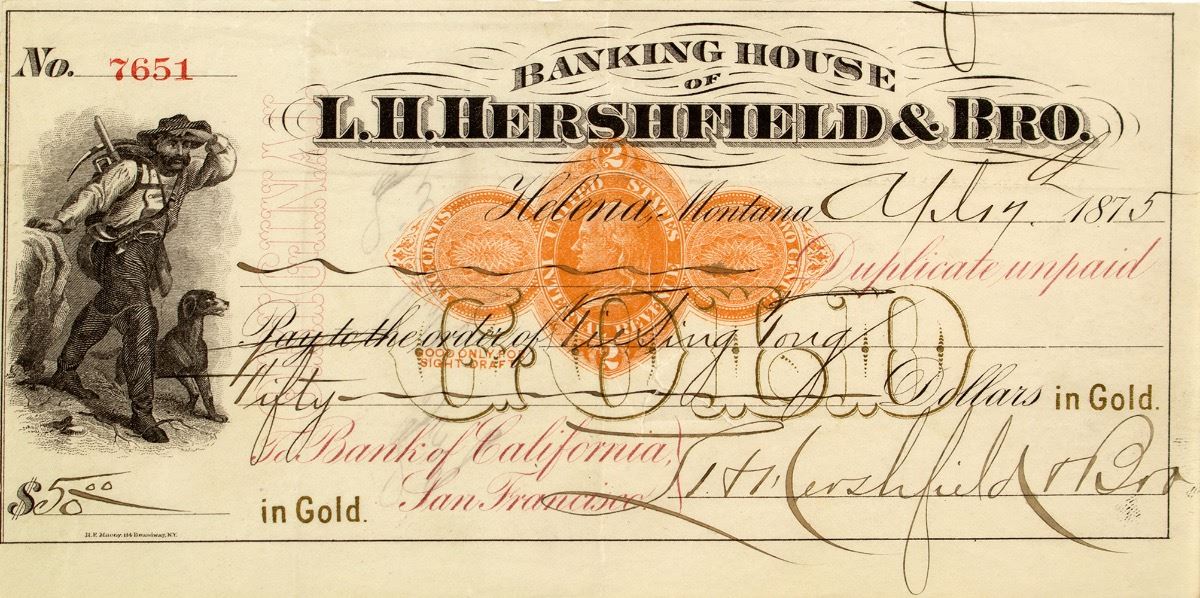 No. 7651
BANKING HOUSE
OF
L.H.HERSHFIELD & BRO.
ORIGINAL
Helena, Montana Apl 19th 1875
2
UNITED STATES
INTERNAL REVENUE
TWO CENTS
TWO CENTS
2
Duplicate unpaid
Pay to the order of Sing Tong
GOOD ONLY FOR
SIGHT DRAFT
GOLD
Fifty Dollars in Gold.
To Bank of California,
San Francisco
L H Hershfield & Bro
$50 00
in Gold.
184 Broadway, N.Y.